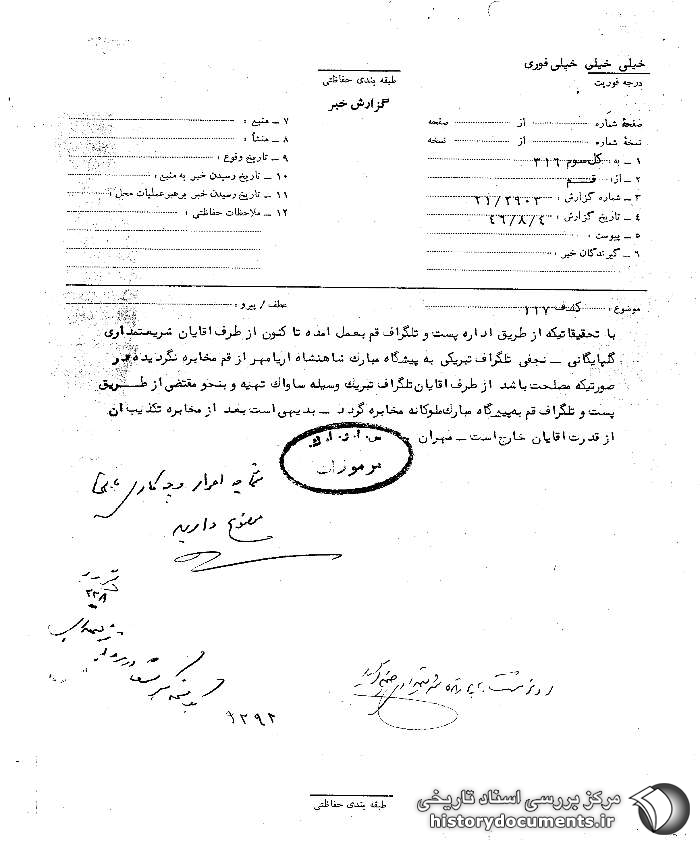 خیلی خیلی خیلی فوری
درجه فوریت
طبقه بندی حفاظتی
گزارش خبر
صفحهٔ شماره از صفحه
نسخهٔ شماره از نسخه
۱ ـ به : کل سوم ۳۱۶
۲ ـ از : قم
۳ ـ شماره گزارش : ۲۱/۲۹۰۳
۴ ـ تاریخ گزارش : ۴۶/۸/۴
۵ ـ پیوست :
۶ ـ گیرندگان خبر :
۷ ـ منبع :
۸ ـ منشأ :
۹ ـ تاریخ وقوع :
۱۰ ـ تاریخ رسیدن خبر به منبع :
۱۱ ـ تاریخ رسیدن خبر برهبر عملیات محل :
۱۲ ـ ملاحظات حفاظتی :
موضوع : کشف ۱۱۷ عطف / پیرو :
با تحقیقاتیکه از طریق اداره پست و تلگراف قم بعمل امده تا کنون از طرف اقایان شریعتمداری
گلپایگانی ـ نجفی تلگراف تبریکی به پیشگاه مبارک شاهنشاه اریامهر از قم مخابره نگردیده در
صورتیکه مصلحت باشد از طرف اقایان تلگراف تبریک وسیله ساواک تهیه و بنحو مقتضی از طریق
پست و تلگراف قم به پیشگاه مبارک ملوکانه مخابره گردد ـ بدیهی است بعد از مخابره تکذیب ان
از قدرت اقایان خارج است ـ مهران
س . ا . و . ا . ک
مرموزات
شما چه اصرار و چه کاری
دارید
۲۳۸
۱۳۹۲
طبقه بندی حفاظتی
مرکز بررسی اسناد تاریخی
historydocuments.ir